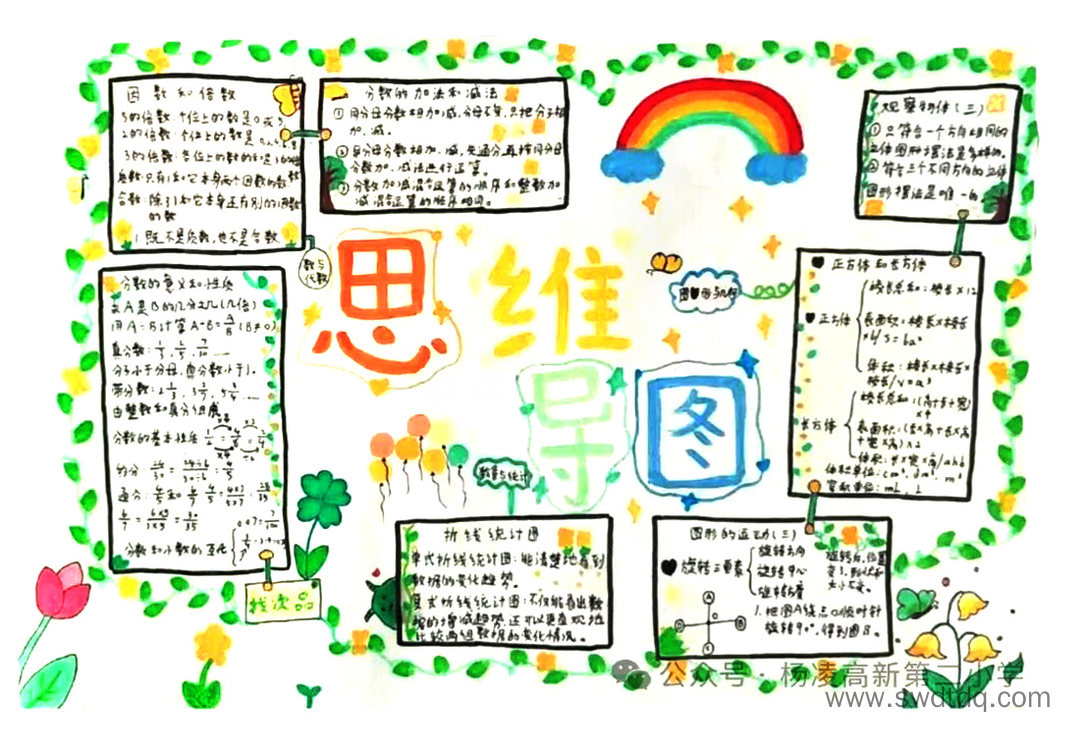 因数和倍数
5的倍数:个位上的数是0或5
2的倍数:个位上的数是0,2,4,6,8
3的倍数:各位上的数的和是3的倍数
质数:只有1和它本身两个因数的数
合数:除了1和它本身还有别的因数
的数
1既不是质数,也不是合数
分数的加法和减法
①同分母分数相加、减,分母不变,只把分子相
加、减。
②异分母分数相加、减,先通分,再按同分母
分数加、减法进行运算。
③分数加减混合运算的顺序和整数加
减混合运算的顺序相同。
观察物体(三)
①只符合一个方向相同的
立体图形摆法是多样的。
②符合三个不同方向的立体
图形摆法是唯一的
数与
代数
思维
导图
图形与几何
数学与统计
分数的意义和性质
求A是B的几分之几(几倍)
用A÷B计算 A÷B=A/B(B≠0)
真分数:1/3,2/5,7/10……
分子小于分母,真分数小于1。
带分数:
由整数和真分数组成
分数的基本性质
约分:24/30=24÷6/30÷6=4/5
通分:
6/7=6×5/7×5=30/35
分数和小数的互化
正方体和长方体
正方体
棱长总和:棱长×12
表面积:棱长×棱长
×6/S=6a²
体积:棱长×棱长×
棱长/V=a³
长方体
棱长总和:(高+长+宽)
×4
表面积:(长×高+长×高
+宽×高)×2
体积:长×宽×高/abh
体积单位:cm³、dm³、m³
容积单位:mL、L
折线统计图
单式折线统计图:能清楚地看到
数据的变化趋势。
复式折线统计图:不仅能看出数
据的增减趋势,还可以更直观地
比较两组数据的变化情况。
图形的运动(三)
旋转三要素
旋转方向
旋转中心
旋转角度
旋转后,位置
变了,形状和
大小不变。
1.把图A绕点O顺时针
旋转90°,得到图B。
A
B
C
D
公众号·杨凌高新第二小学
www.swdtdq.com